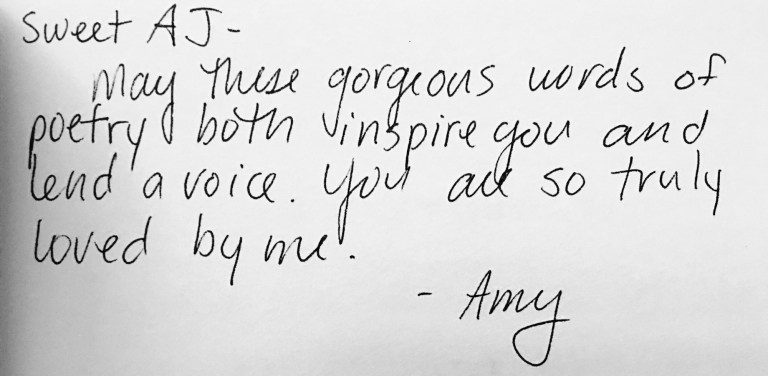 Sweet AJ-
May these gorgeous words of
poetry both inspire you and
lend a voice. You are so truly
loved by me.
- Amy